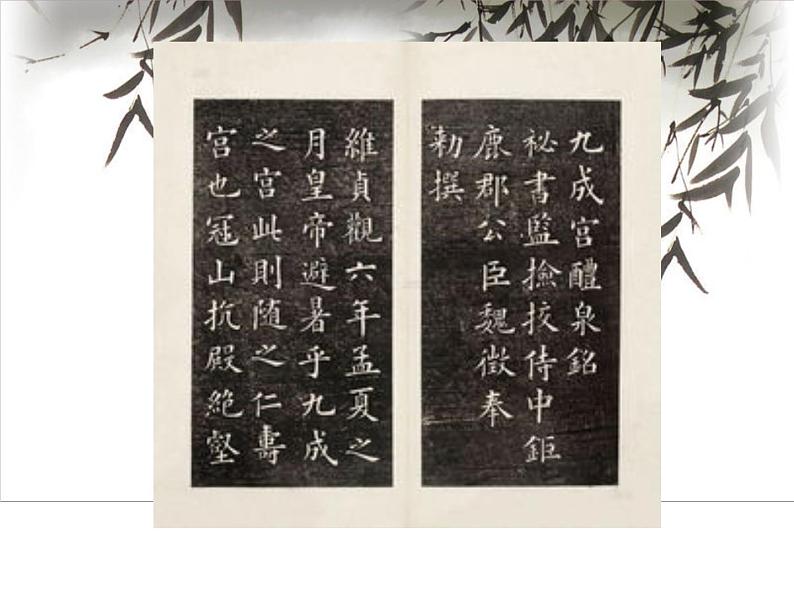 九成宮醴泉銘
祕書監撿挍侍中鉅
鹿郡公臣魏徵奉
勅撰
維貞觀六年孟夏之
月皇帝避暑乎九成
之宮此則随之仁壽
宮也冠山抗殿絶壑